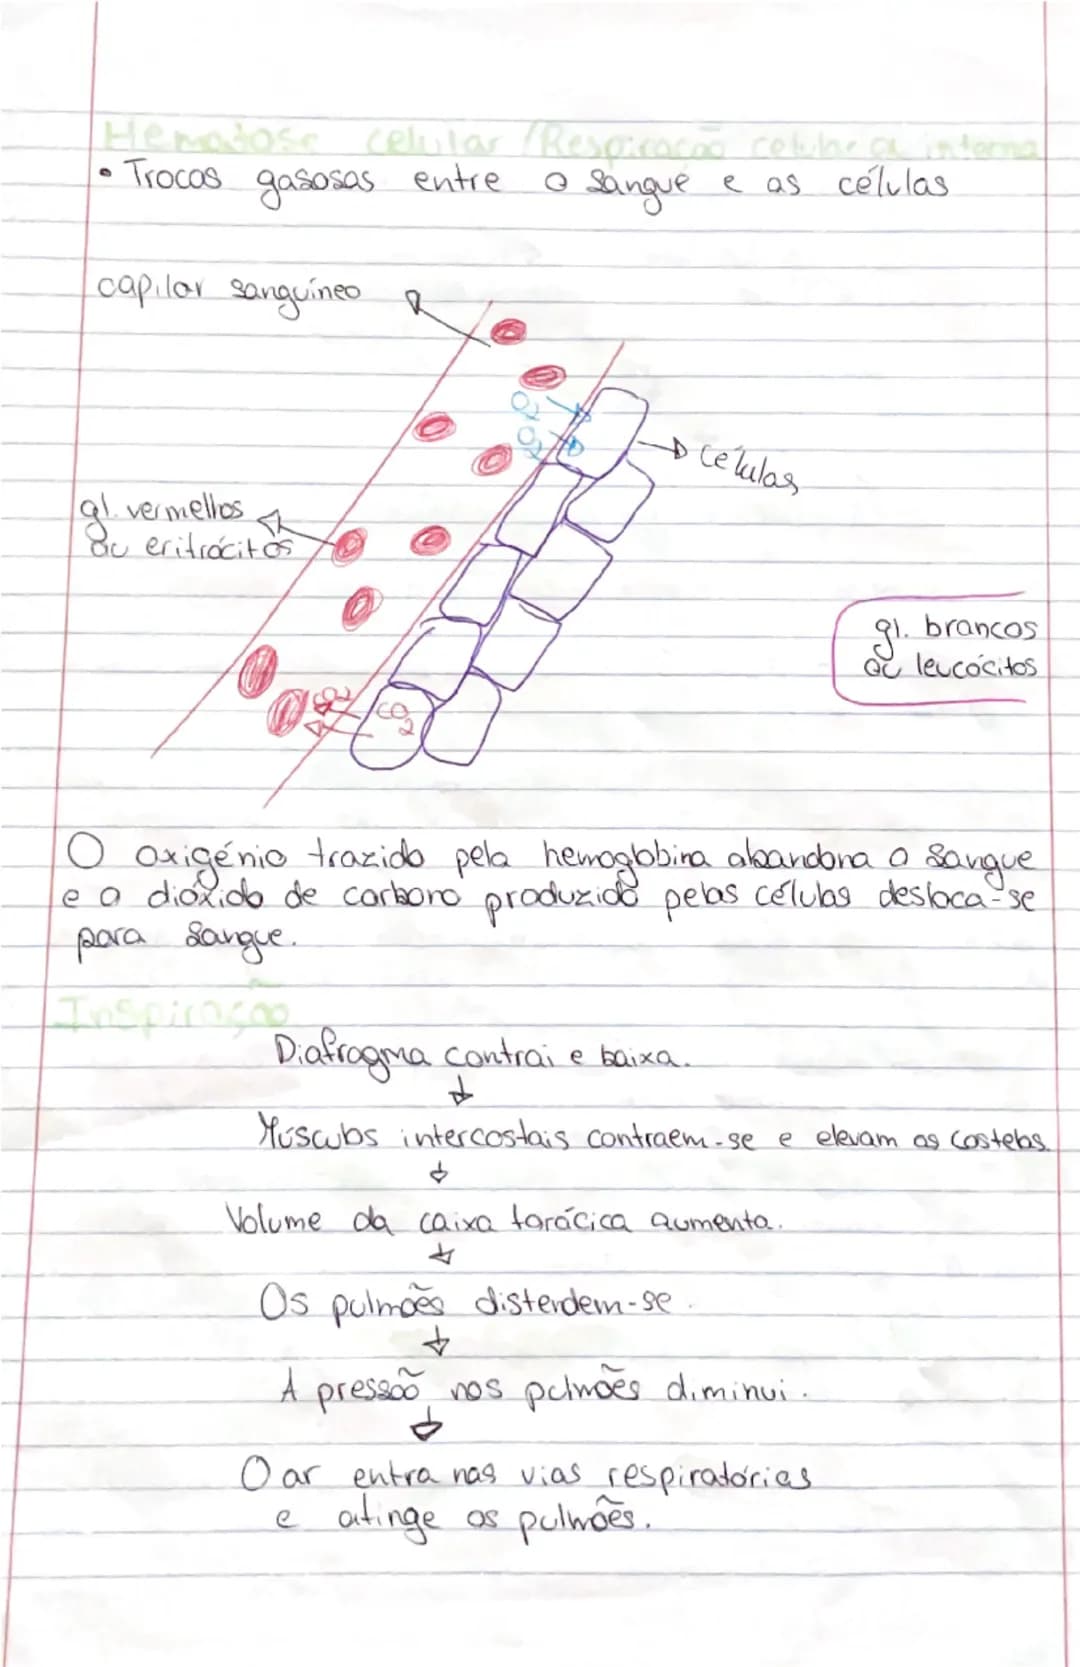 Hematose celular / Respiração celular ou interna
• Trocas gasosas entre o sangue e as células
capilar sanguíneo
O2
O2
células
gl. vermelhos
ou eritrócitos
gl. brancos
ou leucócitos
CO2
CO2
O oxigénio trazido pela hemoglobina abandona o sangue
e o dióxido de carbono produzido pelas células desloca-se
para sangue.
Inspiração
Diafragma contrai e baixa.
Músculos intercostais contraem-se e elevam as costelas.
Volume da caixa torácica aumenta.
Os pulmões distendem-se.
A pressão nos pulmões diminui.
O ar entra nas vias respiratórias
e atinge os pulmões.